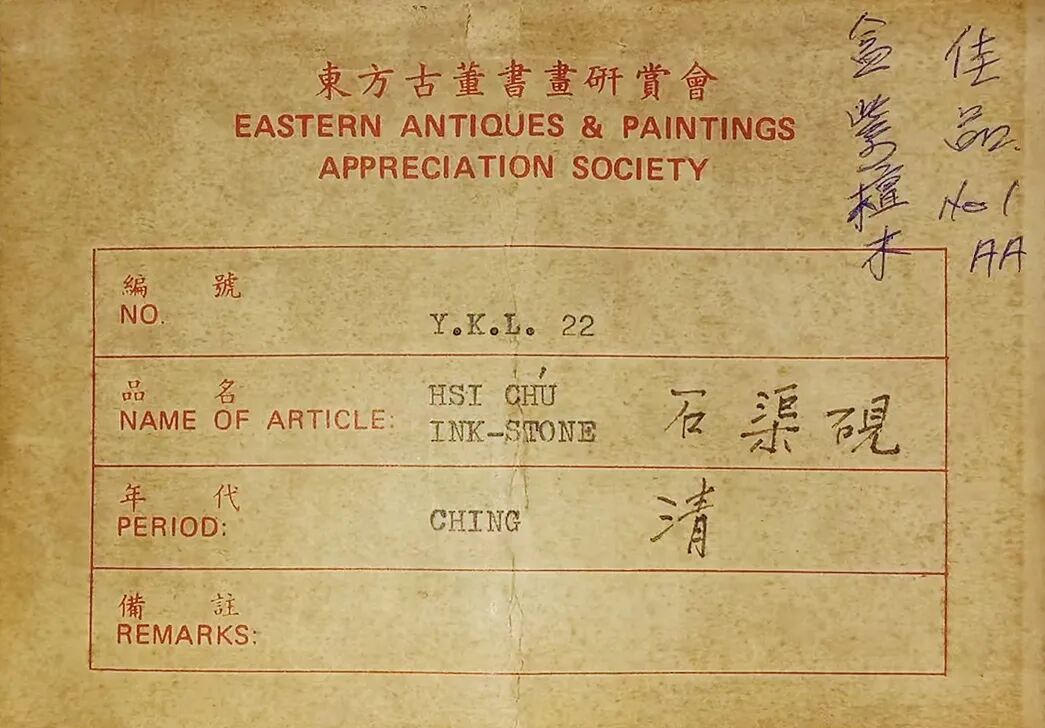 東方古董書畫研賞會
EASTERN ANTIQUES & PAINTINGS
APPRECIATION SOCIETY
佳品 No 1
AA
盒紫檀木
編 號
NO.
Y.K.L. 22
品 名
NAME OF ARTICLE:
HSI CHÚ
INK-STONE
石渠硯
年 代
PERIOD:
CHING
清
備 註
REMARKS: